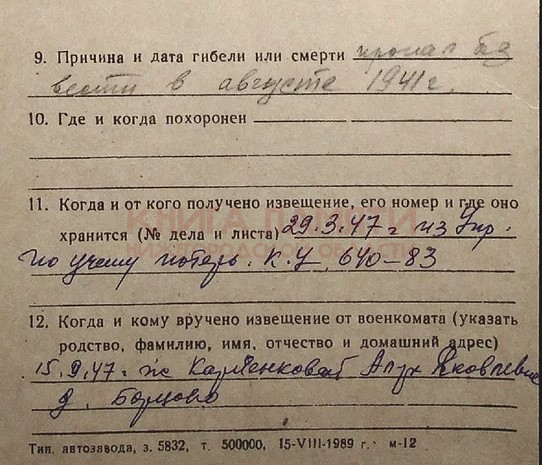 9. Причина и дата гибели или смерти пропал без
вести в августе 1941г.
10. Где и когда похоронен
11. Когда и от кого получено извещение, его номер и где оно
КНИГА ПАМЯТИ
хранится (№ дела и листа) 29.3.47 г из Упр.
НИЖЕГОРОДСКОЙ ОБЛАСТИ
по учету потерь. К.У 640-83
12. Когда и кому вручено извещение от военкомата (указать
родство, фамилию, имя, отчество и домашний адрес)
15.9.47 г Яковлевне
д. Борцово
Тип. автозавода, з. 5832, т. 500000, 15-VIII-1989 г. м-12